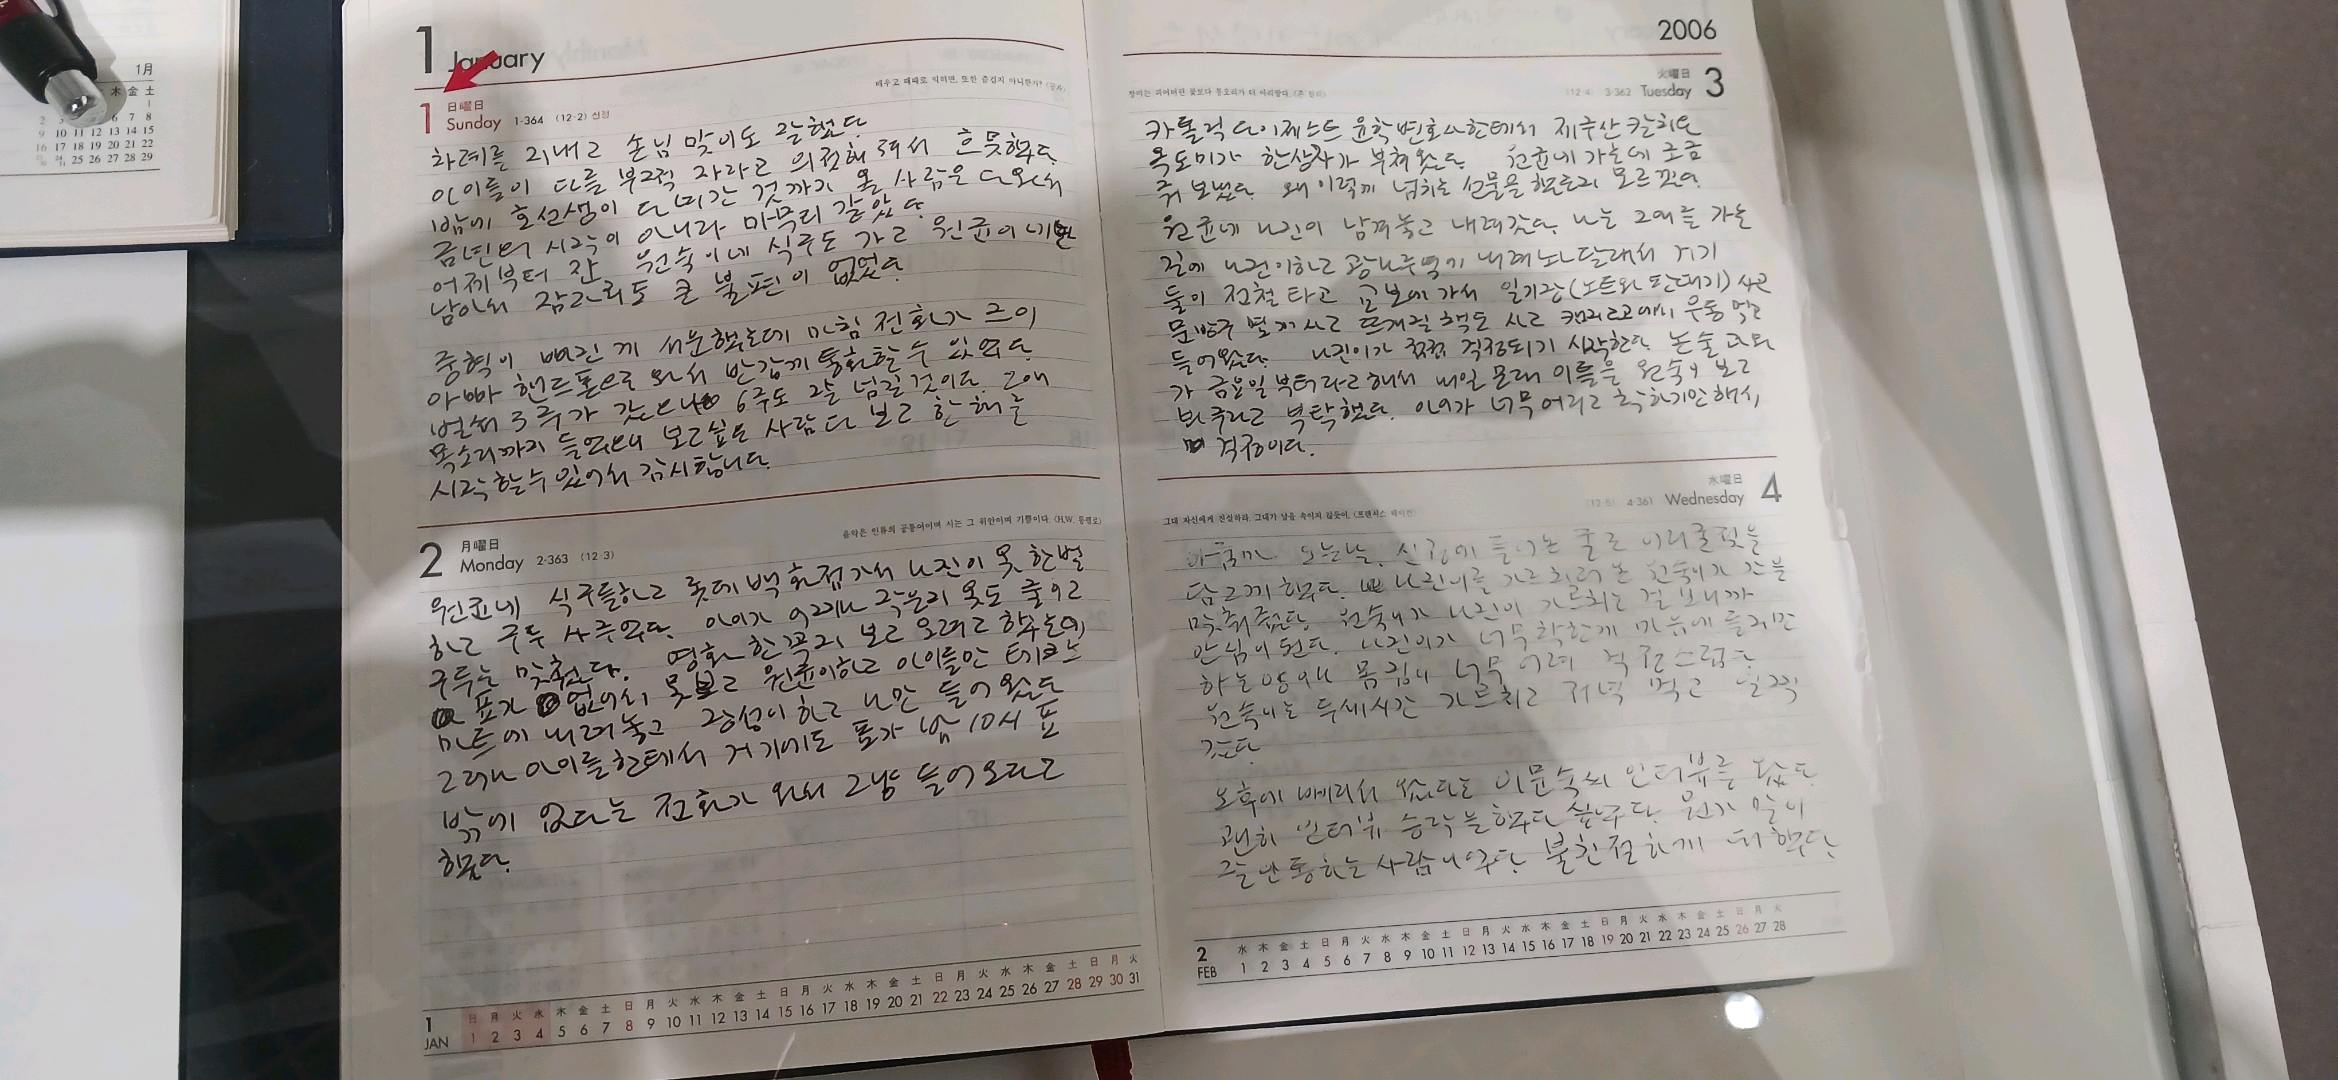 1月
木 金 土
1
2 3 6 7 8
9 10 11 12 13 14 15
16 17 18 19 20 21 22
25 26 27 28 29
1 January
배우고 때때로 익히면, 또한 즐겁지 아니한가? (공자)
1 日曜日
Sunday 1-364 (12·2) 신정
차례를 지내고 손님 맞이도 잘했다.
아이들이 다들 부쩍 자라고 의젓해져서 흐뭇했다.
밤에 호선생이 다녀간 것까지 올 사람은 다 와서
금년의 시작이 아니라 마무리 같았다.
어제부터 잔 원숙이네 식구도 가고 원균이네만
남아서 잠자리도 큰 불편이 없었다.
중혁이 빠진 게 서운했는데 마침 전화가 즈이
아빠 핸드폰으로 와서 반갑게 통화할 수 있었다.
벌써 3주가 갔으니 6주도 잘 넘길 것이다. 그애
목소리까지 들었으니 보고싶은 사람 다 보고 한 해를
시작할 수 있어서 감사합니다.
음악은 인류의 공통어이며 시는 그 위안이며 기쁨이다. (H.W. 롱펠로)
2 月曜日
Monday 2-363 (12·3)
원균네 식구들하고 롯데백화점 가서 나진이 옷 한벌
하고 구두 사주었다. 아이가 어려나 각분지 옷도 줄이고
구두는 맞췄다. 영화 한꼭지 보고 오려고 했는데
표가 없어서 못보고 원균이하고 아이들만 테크노
마트에 내려놓고 강섭이하고 나만 들어왔다
그러나 아이들한테서 거기에도 표가 밤 10시 표
밖에 없다는 전화가 와서 그냥 들어오라고
했다.
1
JAN
日 月 火 水 木 金 土 日 月 火 水 木 金 土 日 月 火 水 木 金 土 日 月 火 水 木 金 土 日 月 火
1 2 3 4 5 6 7 8 9 10 11 12 13 14 15 16 17 18 19 20 21 22 23 24 25 26 27 28 29 30 31
2006
火曜日
(12·4) 3-362 Tuesday 3
카톨릭 다이제스트 윤학 변호사한테서 제주산 갈치와
옥도미가 한상자가 부쳐왔다. 원균네 가는데 조금
줘 보냈다. 왜 이렇게 넘치는 선물을 했는지 모르겠다.
원균네 나진이 남겨놓고 내려갔다. 나는 그애들 가는
길에 나진이하고 광나루역에 내려노라 달래서 거기
둘이 전철 타고 교보에 가서 일기장(노트와 판대기) 사고
문방구 몇개 사고 뜨개질 책도 사고 캘리코에서 우동 먹고
들어왔다. 나진이가 걱정되기 시작한다. 논술과외
가 금요일부터라고 해서 내일 모레 이틀을 원숙이 보고
봐주라고 부탁했다. 아이가 너무 어리고 착하기만 해서,
걱정이다.
그대 자신에게 진실하라, 그대가 남을 속이지 않듯이. (프랜시스 베이컨)
水曜日
(12·5) 4-361 Wednesday 4
오는날, 신김에 들어온 굴로 어리굴젓을
담그게 했다. 나진이를 가르치러 온 원숙이가 간을
맞춰줬다. 원숙이가 나진이 가르치는 걸 보니까
안심이 된다. 나진이가 너무 착한게 마음에 들지만
하는 양이 너무 어려 걱정스럽다.
원숙이는 두세시간 가르치고 저녁 먹고 일찍
갔다.
오후에 빠리서 왔다는 이문숙씨 인터뷰를 왔다.
괜히 인터뷰 승락을 했다 싶었다. 뭔가 말이
잘 안 통하는 사람이었다. 불친절하게 더 했다.
2
FEB
水 木 金 土 日 月 火 水 木 金 土 日 月 火 水 木 金 土 日 月 火 水 木 金 土 日 月 火
1 2 3 4 5 6 7 8 9 10 11 12 13 14 15 16 17 18 19 20 21 22 23 24 25 26 27 28